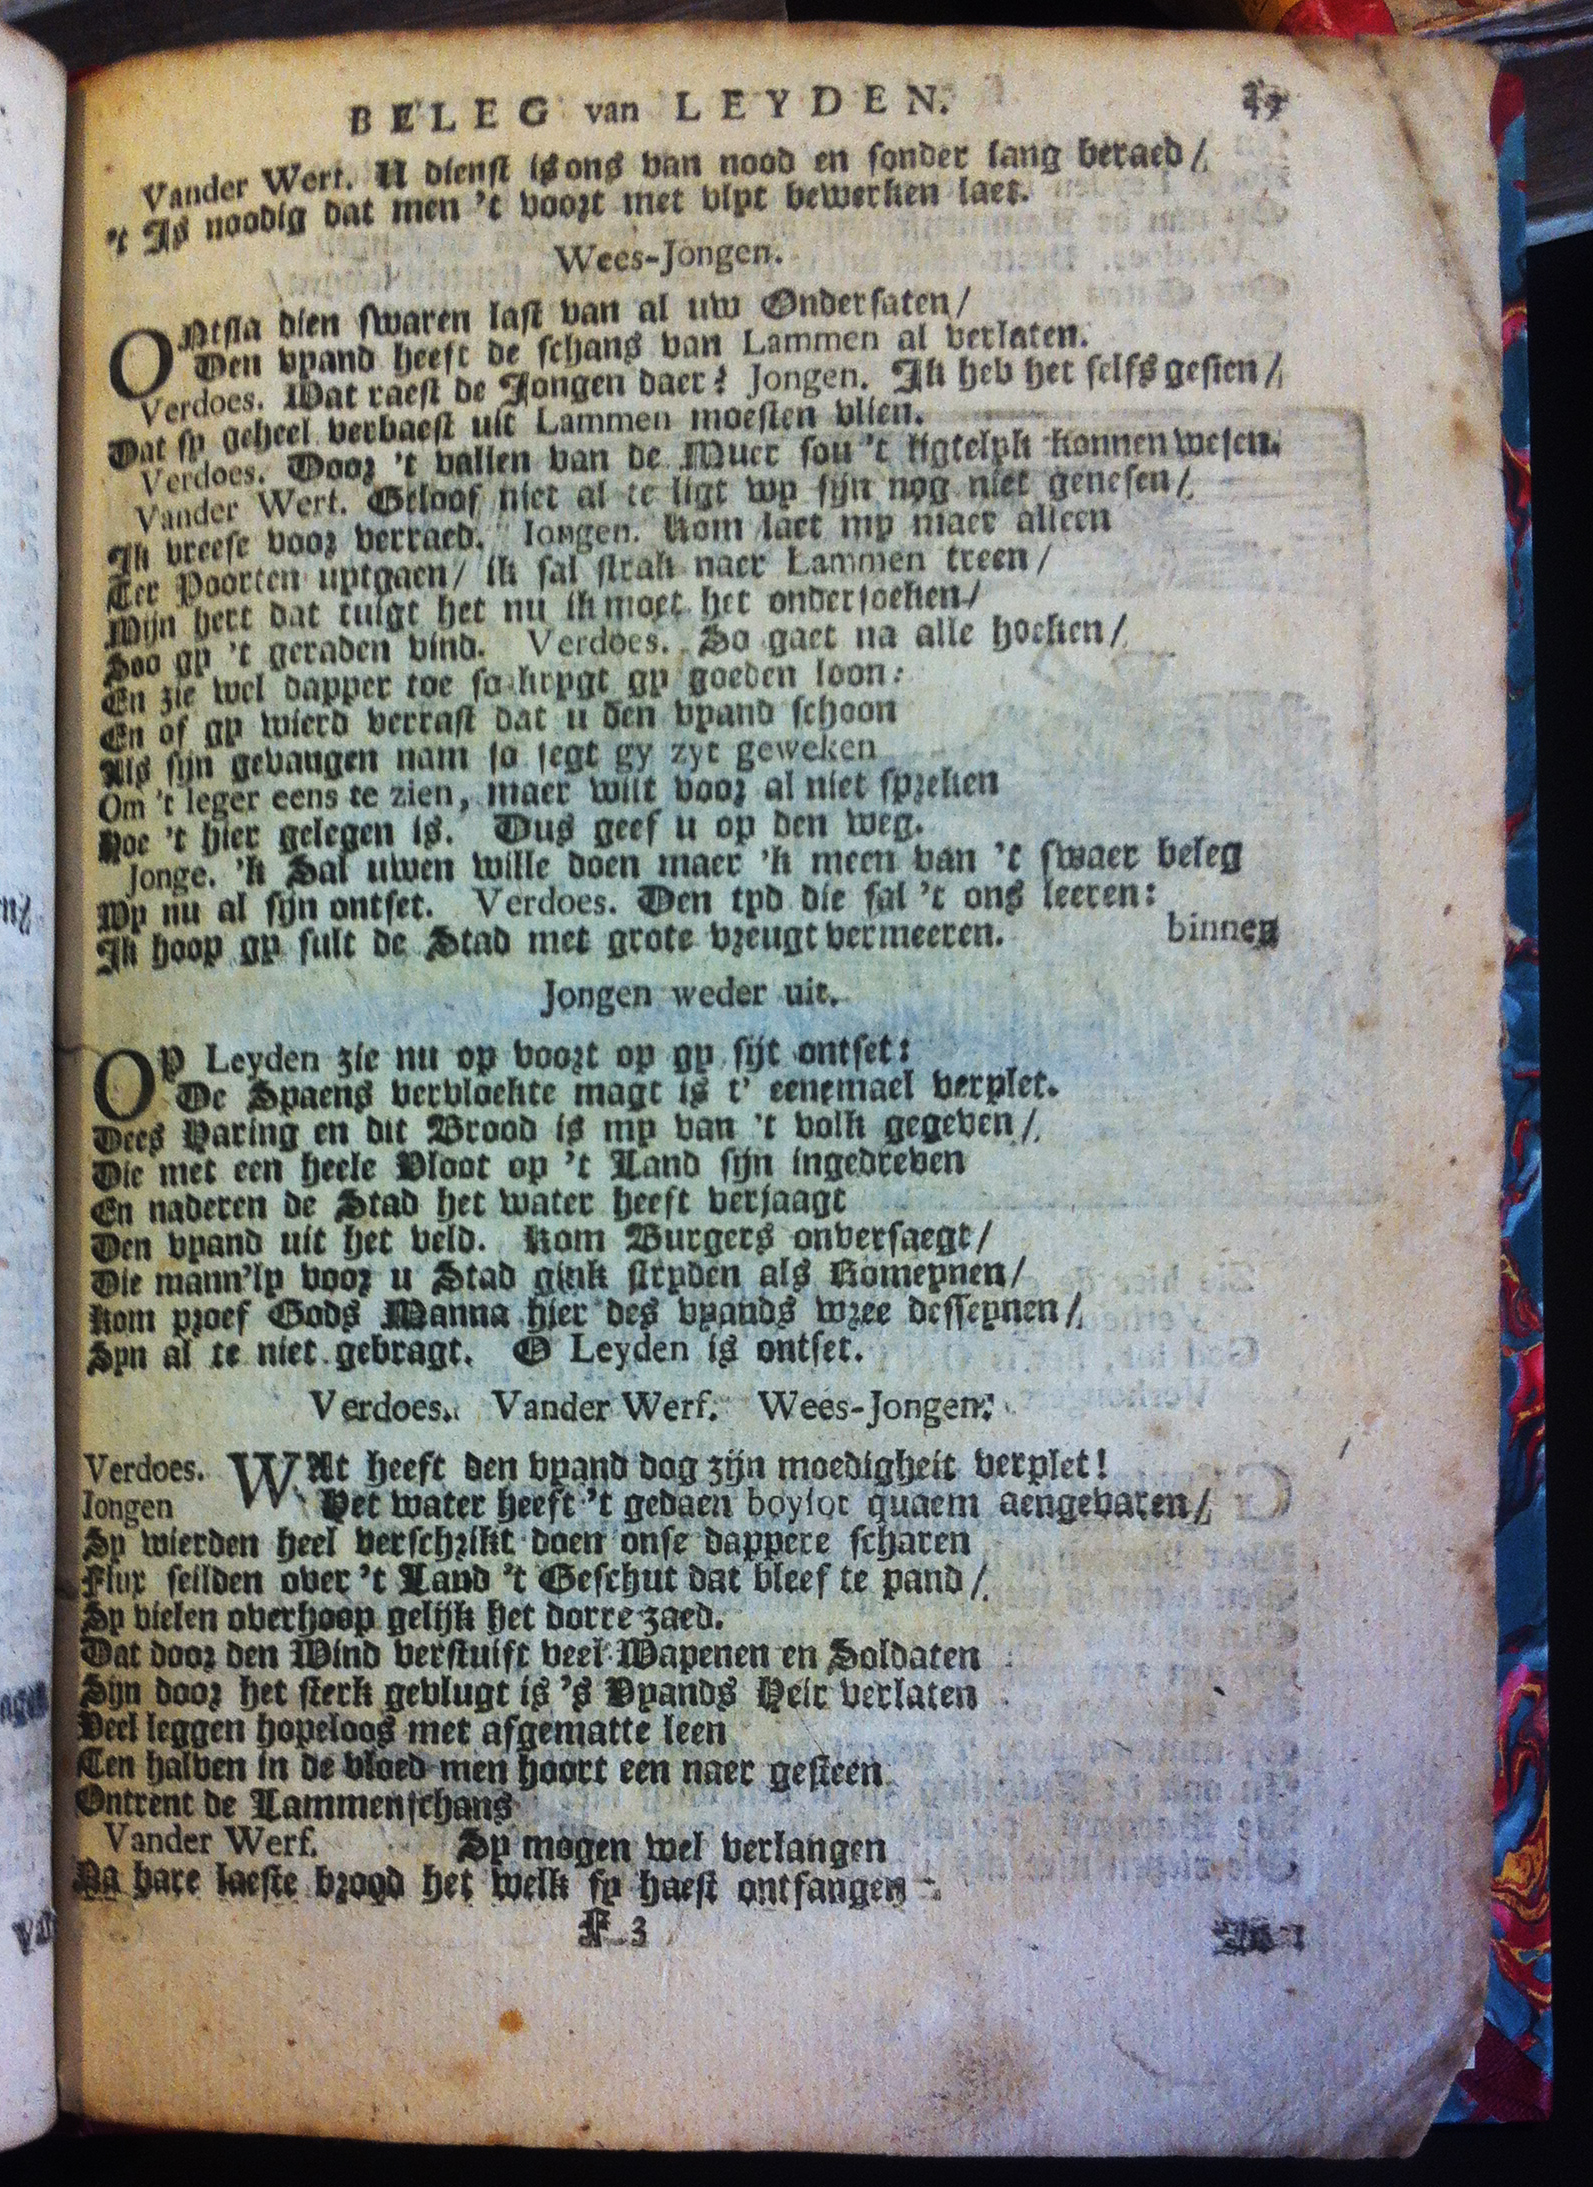 BELEG van LEYDEN.
Vander Werf. U dienst is ons van nood en sonder lang beraed /
't Is noodig dat men 't voort met vlyt bewerken laet.
Wees-Jongen.
ONtsla dien swaren last van al uw Ondersaten /
Den vyand heeft de schans van Lammen al verlaten.
Verdoes. Wat raest de Jongen daer? Jongen. Ik heb het selfs gesien /
Dat sy geheel verbaest uit Lammen moesten vlien.
Verdoes. Door 't vallen van de Muer sou 't ligtelyk konnen wesen.
Vander Werf. Geloof niet al te ligt wy sijn nog niet genesen /
Ik vreese voor verraed. Iongen. Kom laet my maer alleen
Ter Poorten uytgaen / ik sal strak naer Lammen treen /
Mijn hert dat tuigt het nu ik moet het ondersoeken /
Soo gy 't geraden vind. Verdoes. So gaet na alle hoeken /
En zie wel dapper toe so krygt gy goeden loon:
En of gy wierd verrast dat u den vyand schoon
Als sijn gevangen nam so segt gy zyt geweken
Om 't leger eens te zien, maer wilt voor al niet spreken
Hoe 't hier gelegen is. Dus geef u op den weg.
Jonge. 'k Sal uwen wille doen maer 'k meen van 't swaer beleg
Wy nu al sijn ontset. Verdoes. Den tyd die sal 't ons leeren:
Ik hoop gy sult de Stad met grote vreugt vermeeren. binnen
Jongen weder uit.
OP Leyden zie nu op voort op gy sijt ontset:
De Spaens vervloekte magt is t' eenemael verplet.
Dees Haring en dit Brood is my van 't volk gegeven /
Die met een heele Vloot op 't Land sijn ingedreven
En naderen de Stad het water heeft verjaagt
Den vyand uit het veld. Kom Burgers onversaegt /
Die mann'ly voor u Stad gink stryden als Romeynen /
Kom proef Gods Manna hier des vyands wree desseynen /
Syn al te niet gebragt. O Leyden is ontset.
Verdoes. Vander Werf. Wees-Jongen.
Verdoes. WAt heeft den vyand dog zijn moedigheit verplet!
Iongen Het water heeft 't gedaen boysot quaem aengevaren /
Sy wierden heel verschrikt doen onse dappere scharen
Flux seilden over 't Land 't Geschut dat bleef te pand /
Sy vielen overhoop gelijk het dorre zaed.
Dat door den Wind verstuift veel Wapenen en Soldaten
Sijn door het sterk gevlugt is 's Vyands Heir verlaten
Veel leggen hopeloos met afgematte leen
Ten halven in de vloed men hoort een naer gesteen
Ontrent de Lammenschans
Vander Werf. Sy mogen wel verlangen
Na hare laeste brood het welk sy haest ontfangen
F 3